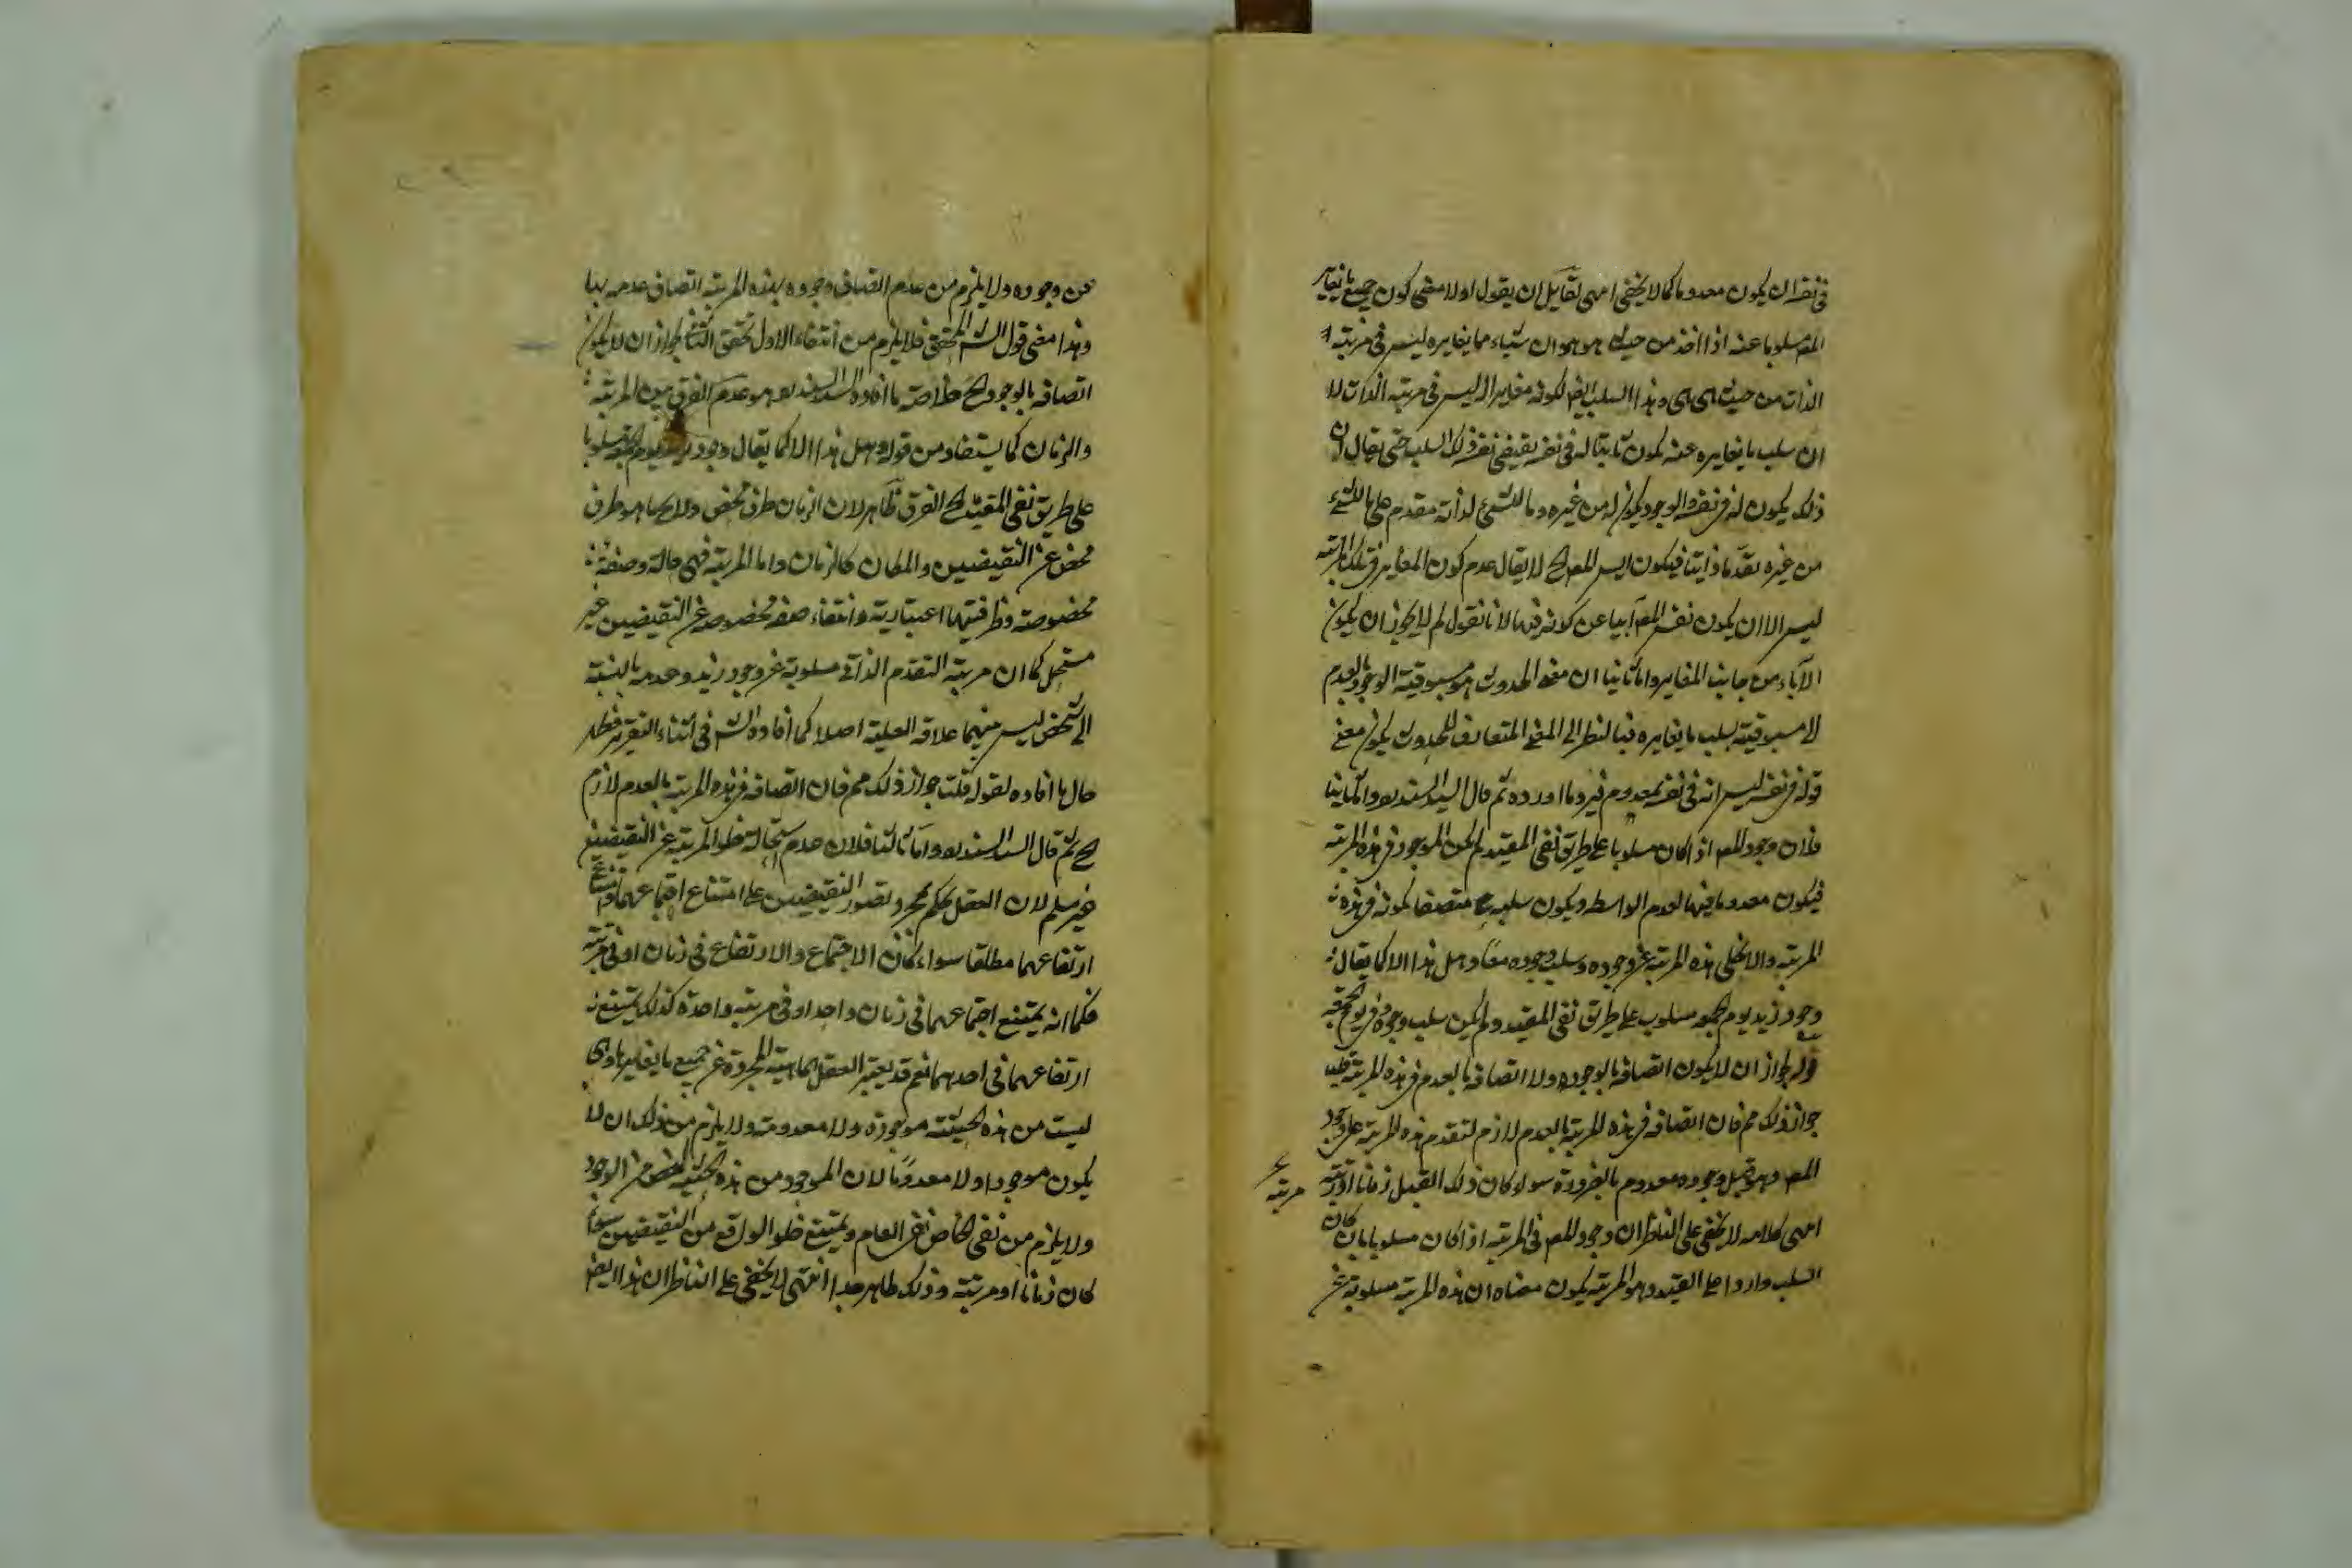 في نفسه ان يكون معدوما كما لا يخفى انتهى لقائل ان يقول اولا معنى كون جميع ما يغاير
المم مسلوبا عنه اذا اخذ من حيث هو هو ان شيئا مما يغايره ليس في مرتبة
الذات من حيث هي هي وهذا السلب ايضا لكونه مغايرا له ليس في مرتبة الذات لا
ان سلب ما يغايره عنه يكون ثابتا له في نفسه يقتضي نفسه ذلك السلب حتى يقال ان
ذلك يكون له في نفسه والوجود يكون له من غيره وما للشيء لذاته مقدم على ما للشيء
من غيره تقدما ذاتيا فيكون ايس المم لا يقال عدم كون المغاير في تلك المرتبة
ليس الا ان يكون نفس المم آبيا عن كونه فيها لانا نقول لم لا يجوز ان يكون
الآباء من جانب المغاير واما ثانيا ان معنى الحدوث هو مسبوقية الوجود بالعدم
لا مسبوقية بسلب ما يغايره فبالنظر الى المعنى المتعارف للحدوث يكون معنى
قوله في نفسه ليس انه في نفسه معدوم فيرد ما اورده ثم قال السيد السند واما ثانيا
فلان وجود المم اذا كان مسلوبا على طريق نفي المقيد لم يكن الموجود في هذه المرتبة
فيكون معدوما فيها لعدم الواسطة ويكون سلبه ح متصفا بكونه في هذه
المرتبة والا لخلى هذه المرتبة عن وجوده وسلب وجوده معا وهل هذا الا كما يقال
وجود زيد يوم الجمعة مسلوب على طريق نفي المقيد ولم يكن سلب وجوده في يوم الجمعة
قوله لجواز ان لا يكون اتصافه بالوجود ولا اتصافه بالعدم في هذه المرتبة قلت
جواز ذلك مم فان اتصافه في هذه المرتبة بالعدم لازم لتقدم هذه المرتبة على وجود
المم وهو قبل وجوده معدوم بالضرورة سواء كان ذلك القبل زمانا او مرتبة
مرتبة
انتهى كلامه لا يخفى على الناظر ان وجود المم في المرتبة اذا كان مسلوبا بان كان
السلب واردا على القيد وهو المرتبة يكون معناه ان هذه المرتبة مسلوبة عن
عن وجوده ولا يلزم من عدم اتصاف وجوده بهذه المرتبة اتصاف عدمه بها
وهذا معنى قول الش المحقق فلا يلزم من انتفاء الاول تحقق الثاني لجواز ان لا يكون
اتصافه بالوجود ح خلاصة ما افاده السيد السند هو عدم الفرق بين المرتبة
والزمان كما يستفاد من قوله وهل هذا الا كما يقال وجود زيد يوم الجمعة مسلوبا
على طريق نفي المقيد ح الفرق ظاهر لان الزمان ظرف محض ولا يحا هو ظرف
محض عن النقيضين والمكان كالزمان واما المرتبة فهي حالة وصفة
مخصوصة وظرفيتها اعتبارية وانتفاء صفة مخصوصة عن النقيضين غير
مستحيل كما ان مرتبة التقدم الذاتي مسلوبة عن وجود زيد وعدمه بالنسبة
الى شخص ليس بينهما علاقة العلية اصلا كما افاده الش في اثناء التقرير فظهر
حال ما افاده لقوله قلت جواز ذلك مم فان اتصافه في هذه المرتبة بالعدم لازم
ح ثم قال السيد السند واما ثالثا فلان عدم استحالة خلو المرتبة عن النقيضين
غير مسلم لان العقل يحكم بمجرد تصور النقيضين على امتناع اجتماعهما وامتناع
ارتفاعهما مطلقا سواء كان الاجتماع والارتفاع في زمان او في مرتبة
فكما انه يمتنع اجتماعهما في زمان واحد او في مرتبة واحدة كذلك يمتنع
ارتفاعهما في احدهما نعم قد يعتبر العقل الماهية المجردة عن جميع ما يغايرها وهي
ليست من هذه الحيثية موجودة ولا معدومة ولا يلزم من ذلك ان لا
يكون موجودا ولا معدوما لان الموجود من هذه الحيثية اخص من الوجود
ولا يلزم من نفي الخاص نفي العام ويمتنع خلو الواقع من النقيضين سواء
كان زمانا او مرتبة وذلك ظاهر جدا انتهى لا يخفى على الناظر ان هذا ايضا